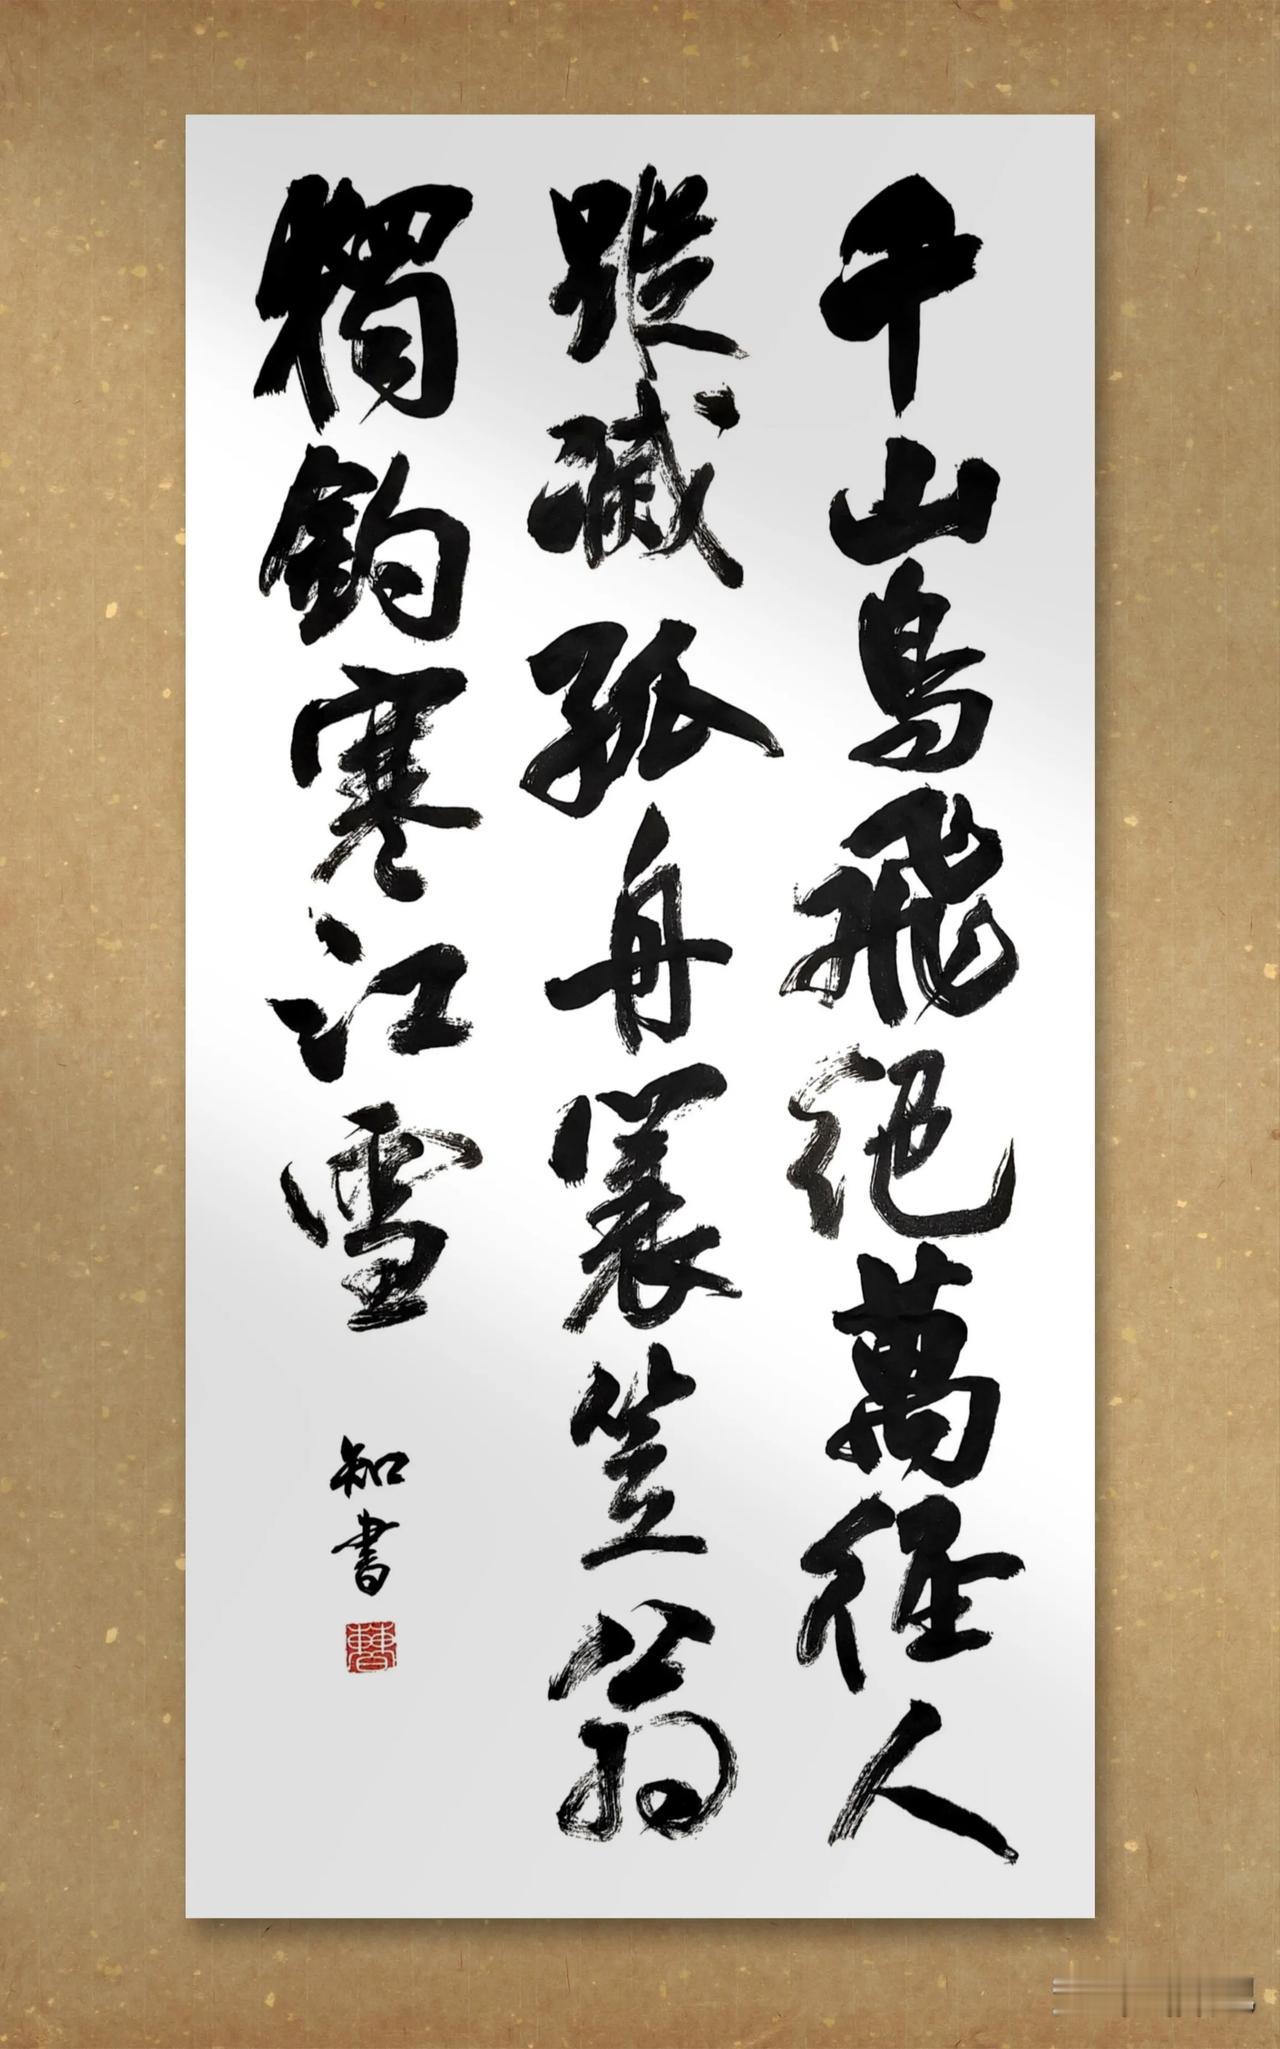 千山鳥飛絕萬徑人
蹤滅孤舟蓑笠翁
獨釣寒江雪
知書